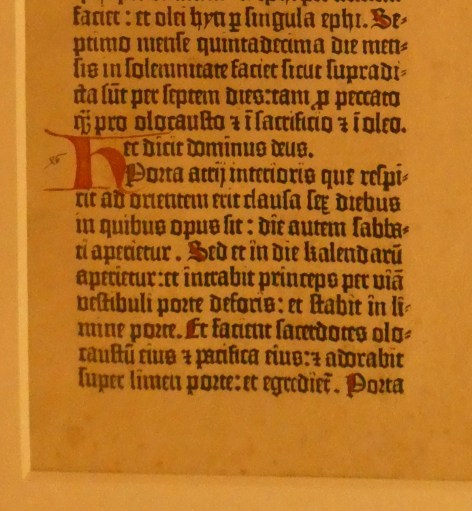 faciet : et olei hyn ꝑ singula ephi. Se⸗
ptimo mense quintadecima die men⸗
sis in solemnitate faciet sicut supradi⸗
cta sūt per septem dies: tam ꝓ peccato
qꝫ pro olocausto ⁊ ī sacrificio ⁊ ī oleo.
Hec dicit dominus deus.
Porta atrij interioris que respi⸗
cit ad orientem erit clausa sex diebus
in quibus opus sit : die autem sabba⸗
ti aperietur . Sed et in die kalendarū
aperietur: et intrabit princeps per viā
vestibuli porte deforis : et stabit in li⸗
mine porte. Et facient sacerdotes olo⸗
caustū eius ⁊ pacifica eius: ⁊ adorabit
super limen porte: et egrediet̄. Porta